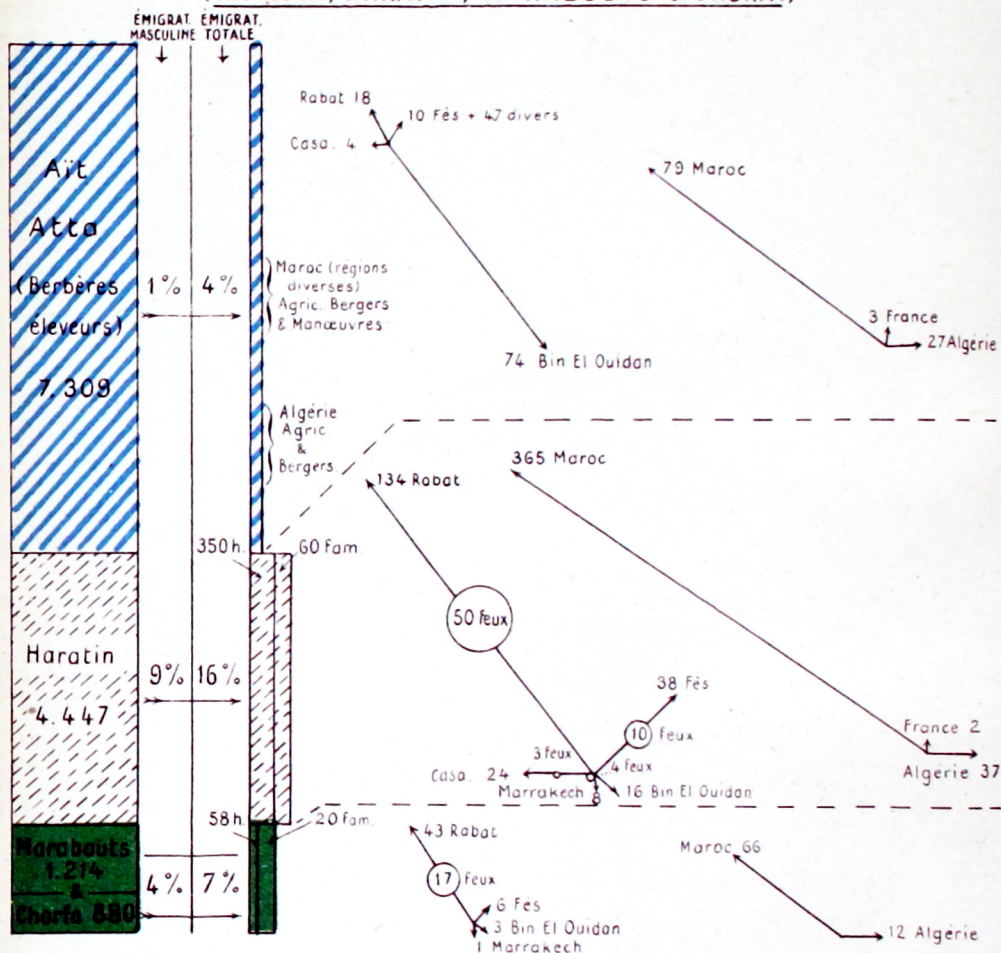 ÉMIGRAT. ÉMIGRAT.
MASCULINE TOTALE
Aït
Atta
(Berbères
éleveurs)
7.309
1% 4%
Maroc (régions
diverses)
Agric. Bergers
& Manœuvres
Algérie
Agric.
&
Bergers
Rabat 18
10 Fès + 47 divers
Casa. 4
74 Bin El Ouidan
79 Maroc
3 France
27 Algérie
350 h. 60 Fam.
Haratin
4.447
9% 16%
134 Rabat
50 feux
38 Fès
10 feux
3 feux
4 feux
Casa. 24
Marrakech 8
16 Bin El Ouidan
365 Maroc
France 2
Algérie 37
58 h. 20 Fam.
Marabouts
1.214
&
Chorfa 880
4% 7%
43 Rabat
17 feux
6 Fès
3 Bin El Ouidan
1 Marrakech
Maroc 66
12 Algérie